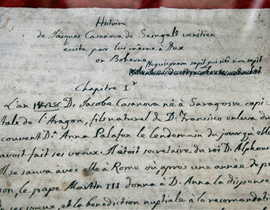 Histoire
de Jacques Casanova de Seingalt venitien
ecrite par lui même à Dux
en Boheme
Nequicquam sapit qui sibi non sapit
Chapitre I.r
L'an 1428 D. Jacobe Casanova né à Saragosse capi
tale de l'Aragon, fils naturel de D. Francisco enleva du
couvent D. Anna Palafox le lendemain du jour qu'elle
avoit fait ses voeux. Il étoit secretaire du roi D. Alphons
Il se sauva avec elle à Rome où après une année de pri
son, le pape Martin III donna à D. Anna la dispense
de ses voeux, et la benediction nuptiale à la recomandat